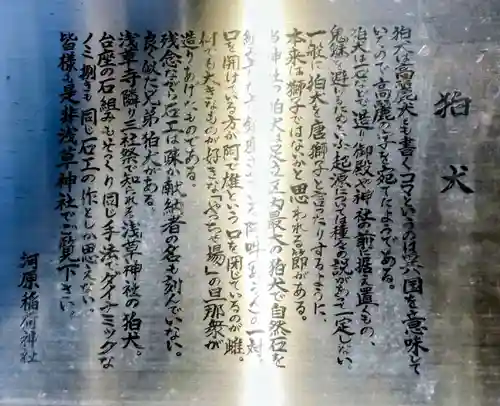 狛犬
狛犬は高麗犬とも書くコマというのは異国を意味して
いるので高麗の字を宛てたようである。
狛犬は石などで造り御殿や神社の前に据え置くもの、
鬼魅を避けるためという起源については種々の説があって一定しない。
一般に狛犬を唐獅子と言ったりするように、
本来は獅子ではないかと思われる節がある。
当神社の狛犬は足立区内最大の狛犬で自然石を
阿吽
口を開けている方が阿で雄という口を閉じているのが雌。
何でも大きなものが好きな「やっちゃ場」の旦那衆が
造りあげたものである。
残念ながら石工は疎か献納者の名も刻んでいない。
良く似た兄弟狛犬がある。
浅草寺隣り三社祭で知られる浅草神社の狛犬。
台座の石組みもそっくり同じ手法、ダイナミックな
ノミ捌きも同じ石工の作としか思えない。
皆様も是非浅草神社でご覧下さい。
河原稲荷神社